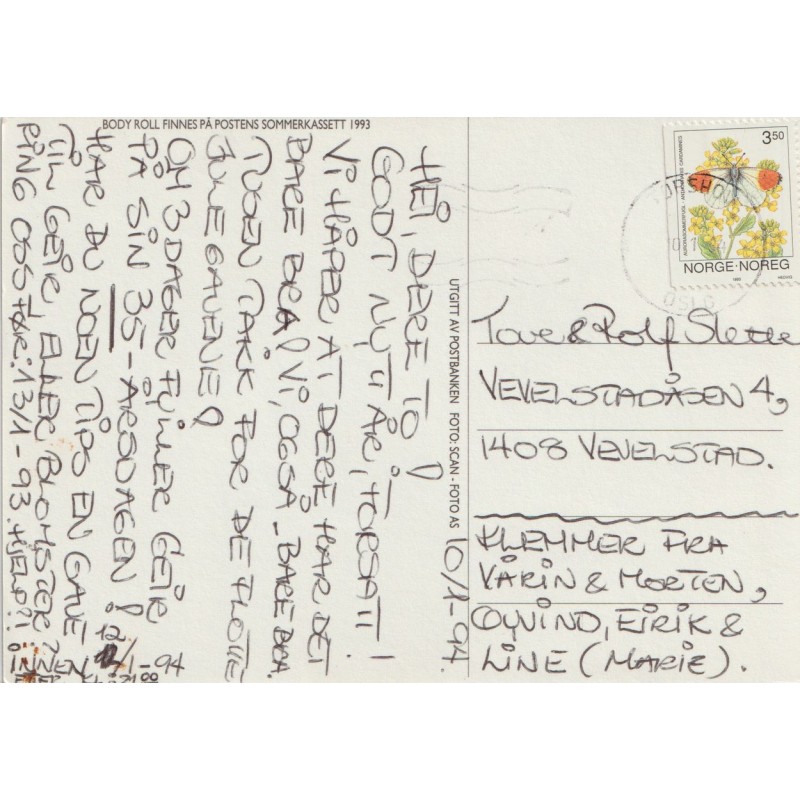 BODY ROLL FINNES PÅ POSTENS SOMMERKASSETT 1993
10/1-94.
HEI, DERE TO!
GODT NYTTÅR, FORSATT!
VI HÅPER AT DERE HAR DET
BARE BRA! VI, OGSÅ - BARE BRA.
TUSEN TAKK FOR DE FLOTTE
JULEGAVENE!
OM 3 DAGER FYLLER GEIR
PÅ SIN 35-ÅRSDAGEN!
HAR DU NOEN TIPS EN GAVE
TIL GEIR, ELLER BLOMSTER?
RING OSS FØR: 13/1-93. HJELP!!
INNEN 12/1-94
ETTER KL: 21.00
UTGITT AV POSTBANKEN FOTO: SCAN - FOTO AS
3.50
AURORASOMMERFUGL - ANTHOCHARIS CARDAMINES
NORGE·NOREG
1993
OSLO
Tove & Rolf Slette
VEVELSTADÅSEN 4,
1408 VEVELSTAD.
KLEMMER FRA
VÅRIN & MORTEN,
ØYVIND, EIRIK &
LINE (MARIE).